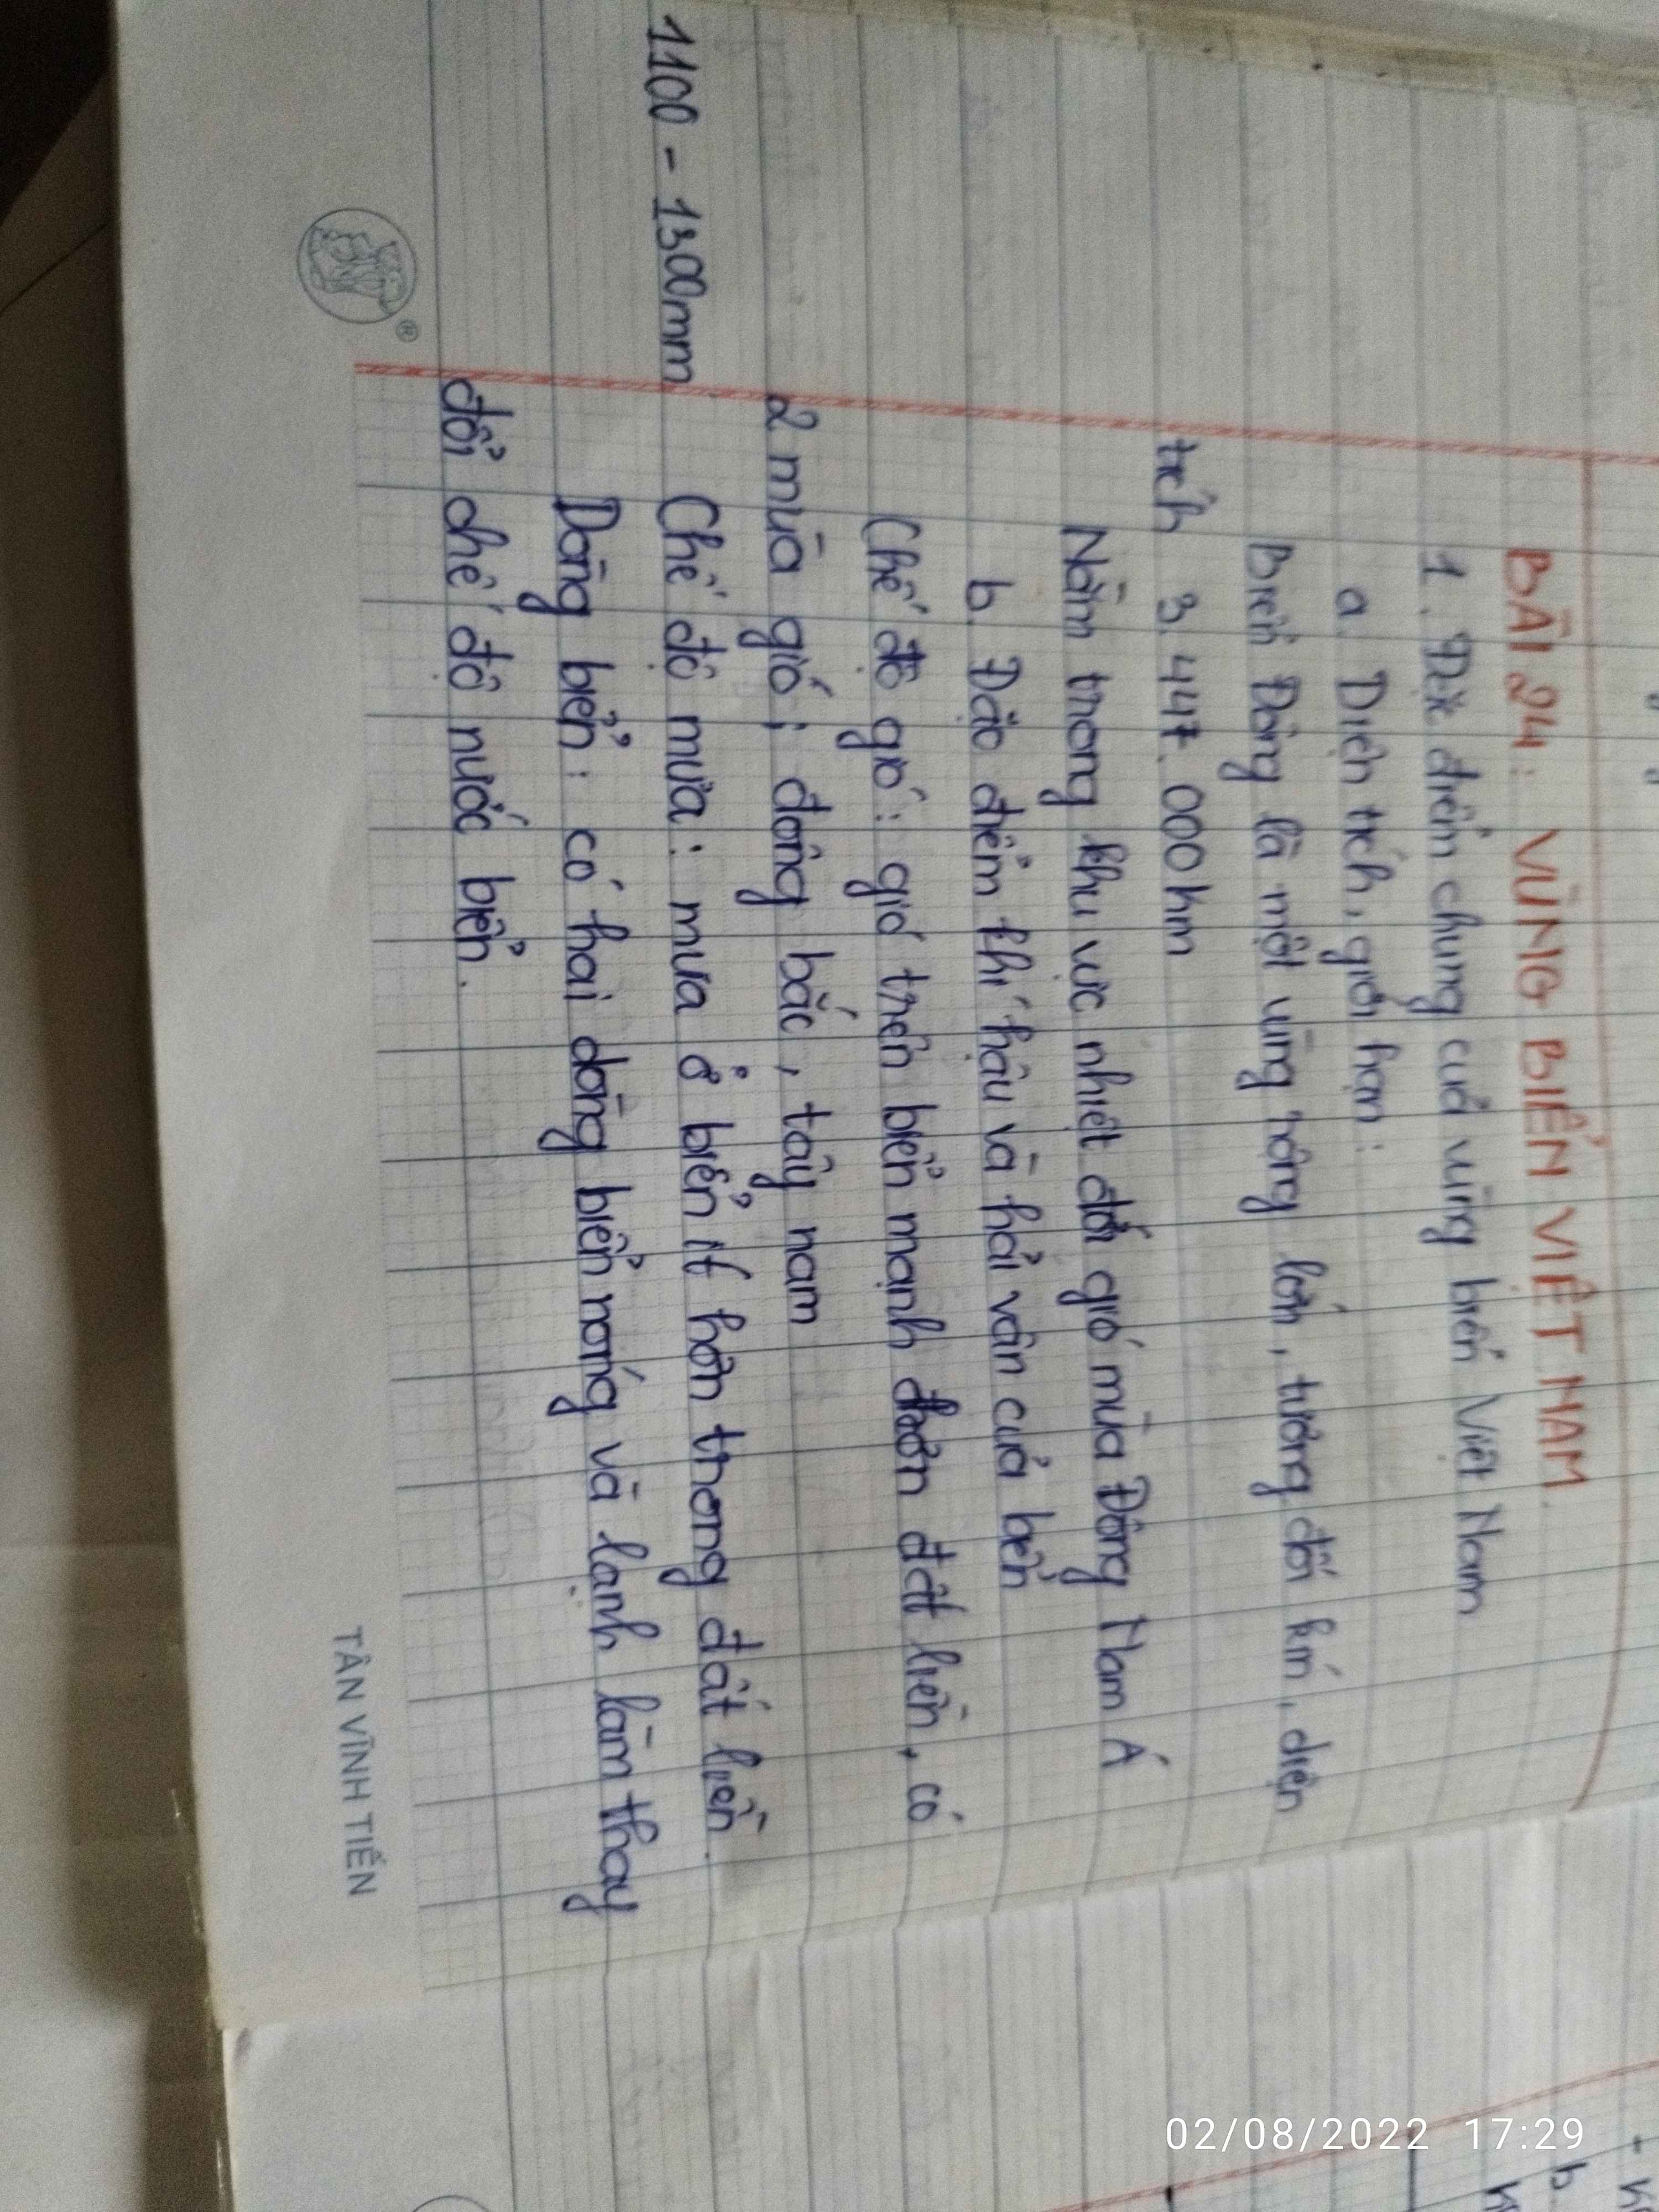 BÀI 24: VÙNG BIỂN VIỆT NAM.
1. Đặc điểm chung của vùng biển Việt Nam
a. Diện tích, giới hạn:
Biển Đông là một vùng rộng lớn, tương đối kín, diện
tích 3.447.000km
Nằm trong khu vực nhiệt đới gió mùa Đông Nam Á
b. Đặc điểm khí hậu và hải văn của biển
Chế độ gió: gió trên biển mạnh hơn đất liền, có
2 mùa gió; đông bắc, tây nam
1100 - 1300mm Chế độ mưa: mưa ở biển ít hơn trong đất liền.
Dòng biển: có hai dòng biển nóng và lạnh làm thay
đổi chế độ nước biển.
®
TÂN VĨNH TIẾN
b
02/08/2022 17:29